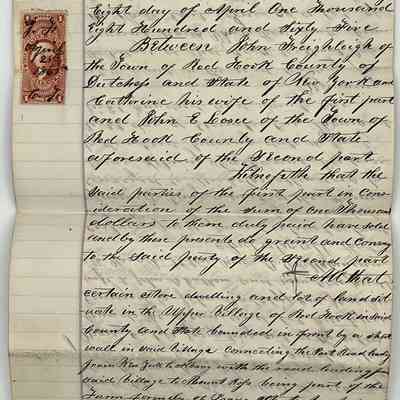 Eight day of April One Thousand
Eight Hundred and Sixty Five
Between John Freighleigh of
the Town of Red Hook County of
Dutchess and State of New York and
Catherine his wife of the first part
and John E Losee of the Town of
Red Hook County and State
aforesaid of the Second part
Witnesseth that the
said parties of the first part in Con-
sideration of the sum of One Thousand
dollars to them duly paid have sold
and by these presents do grant and Convey
to the said party of the Second part
All that
certain store dwelling and lot of land sit-
uate in the Upper Village of Red Hook in said
County and State bounded in front by a
wall in said Village connecting the Post Road leading
from New York to Albany with the road leading from
said Village to Mount Ross being part of the
Farm formerly of